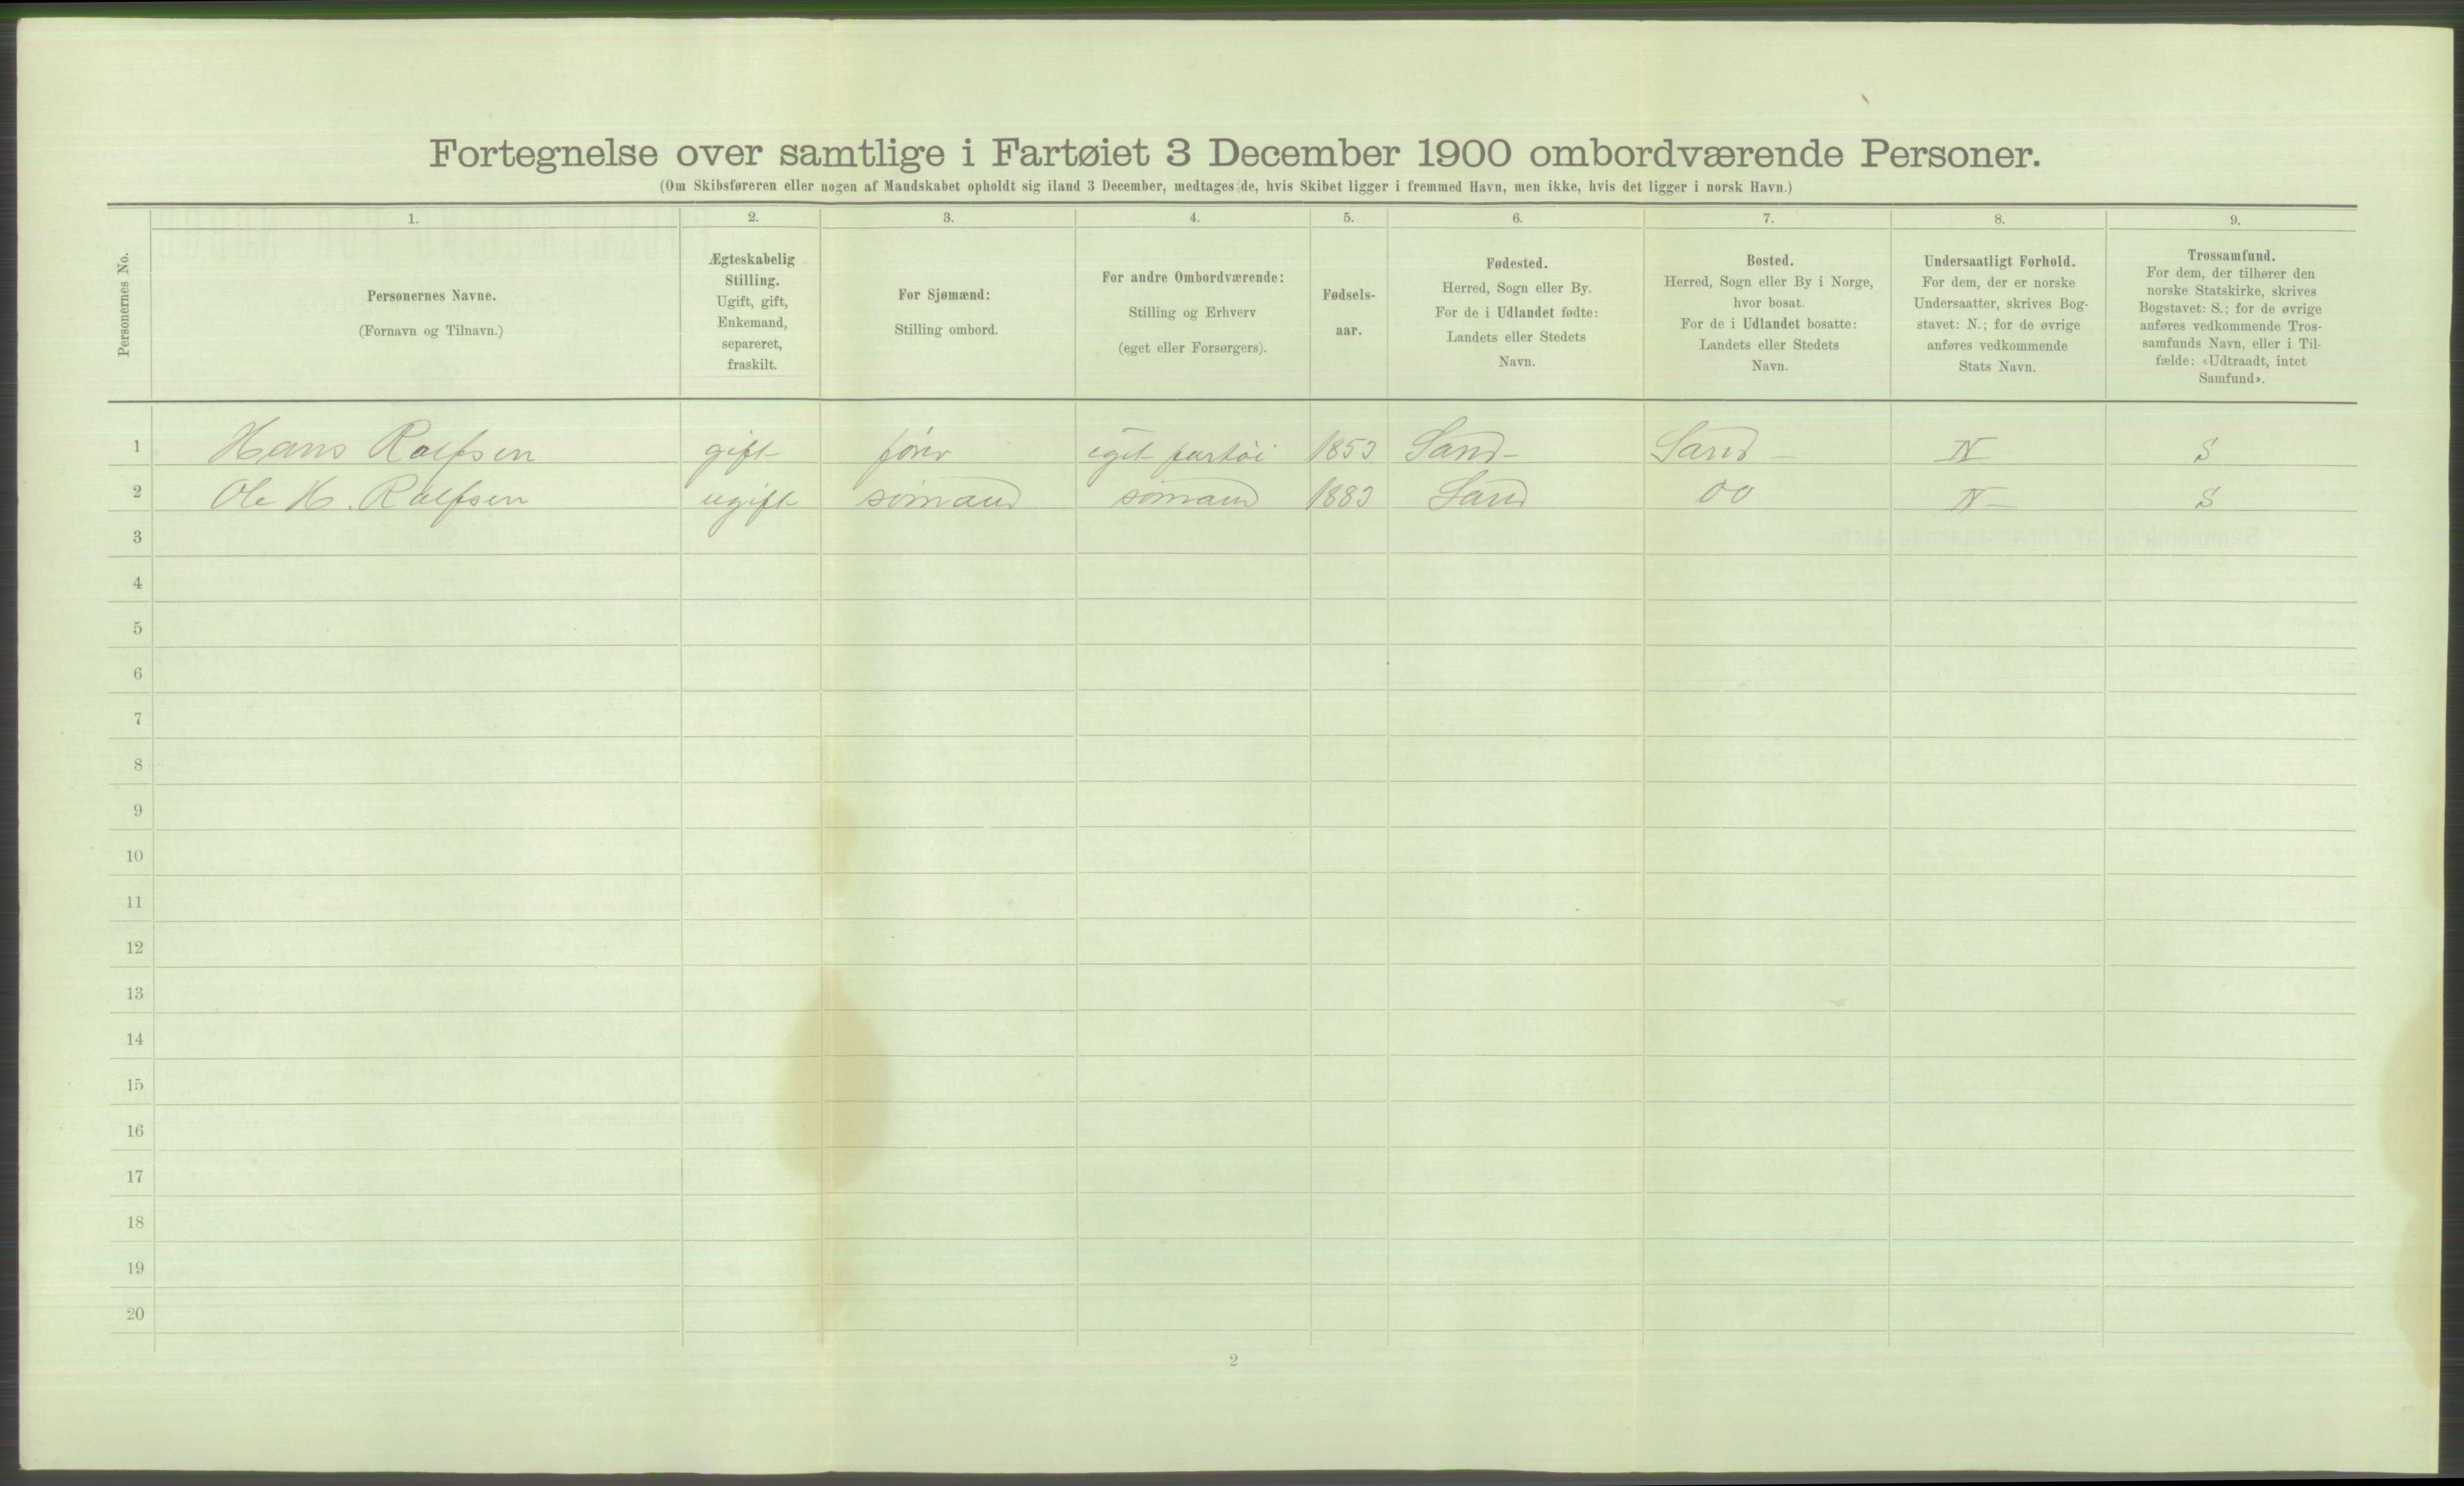 Fortegnelse over samtlige i Fartøiet 3 December 1900 ombordværende Personer.
(Om Skibsføreren eller nogen af Mandskabet opholdt sig iland 3 December, medtages de, hvis Skibet ligger i fremmed Havn, men ikke, hvis det ligger i norsk Havn.)
Personernes No.
1.
Personernes Navne.
(Fornavn og Tilnavn.)
2.
Ægteskabelig
Stilling.
Ugift, gift,
Enkemand,
separeret,
fraskilt.
3.
For Sjømænd:
Stilling ombord.
4.
For andre Ombordværende:
Stilling og Erhverv
(eget eller Forsørgers).
5.
Fødsels-
aar.
6.
Fødested.
Herred, Sogn eller By.
For de i Udlandet fødte:
Landets eller Stedets
Navn.
7.
Bosted.
Herred, Sogn eller By i Norge,
hvor bosat.
For de i Udlandet bosatte:
Landets eller Stedets
Navn.
8.
Undersaatligt Forhold.
For dem, der er norske
Undersaatter, skrives Bog-
stavet: N.; for de øvrige
anføres vedkommende
Stats Navn.
9.
Trossamfund.
For dem, der tilhører den
norske Statskirke, skrives
Bogstavet: S.; for de øvrige
anføres vedkommende Tros-
samfunds Navn, eller i Til-
fælde: «Udtraadt, intet
Samfund».
1 Hans Rolfsen gift fører eget fartöi 1853 Sand - Sand - N S
2 Ole H. Rolfsen ugift sömand sömand 1883 Sand do N - S
3
4
5
6
7
8
9
10
11
12
13
14
15
16
17
18
19
20
2